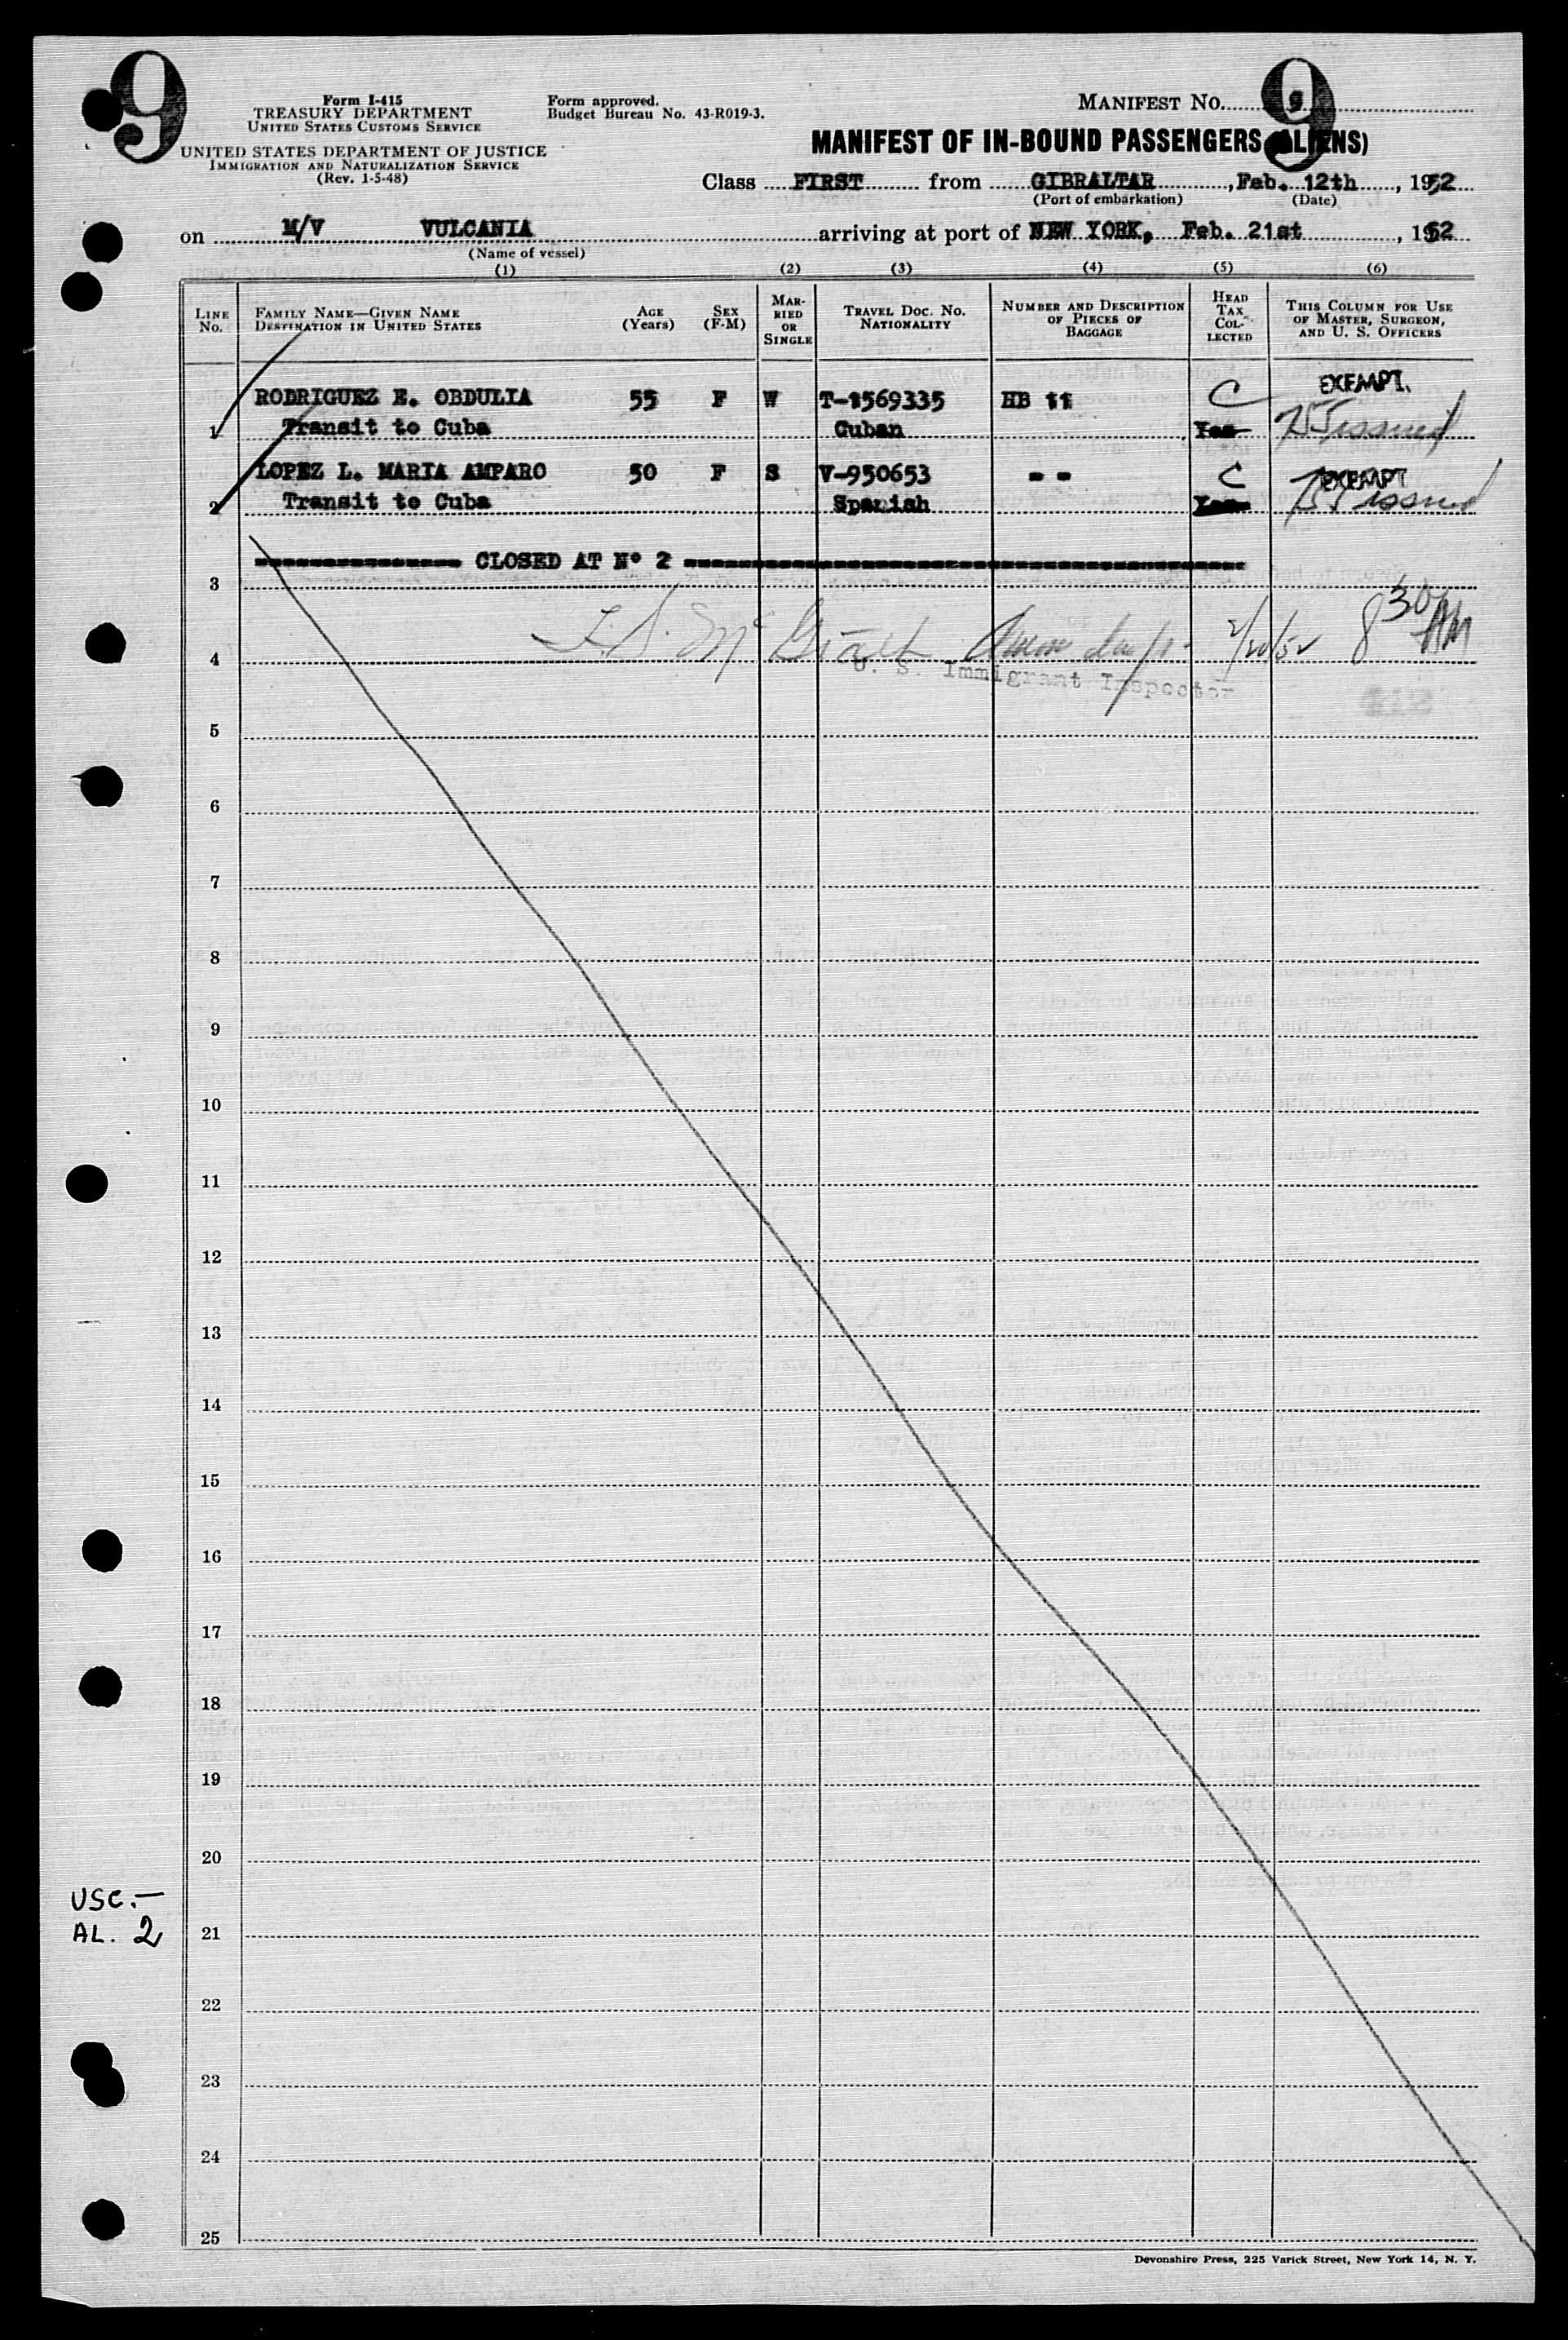 9 9
Form I-415
TREASURY DEPARTMENT
UNITED STATES CUSTOMS SERVICE
UNITED STATES DEPARTMENT OF JUSTICE
IMMIGRATION AND NATURALIZATION SERVICE
(Rev. 1-5-48)
Form approved.
Budget Bureau No. 43-R019-3.
MANIFEST NO. 9
MANIFEST OF IN-BOUND PASSENGERS (ALIENS)
Class FIRST from GIBRALTAR, Feb. 12th, 1952
(Port of embarkation) (Date)
on M/V VULCANIA arriving at port of NEW YORK, Feb. 21st, 1952
(Name of vessel)
(1) (2) (3) (4) (5) (6)
LINE No.
FAMILY NAME—GIVEN NAME
DESTINATION IN UNITED STATES
AGE (Years)
SEX (F-M)
MARRIED OR SINGLE
TRAVEL DOC. NO. NATIONALITY
NUMBER AND DESCRIPTION OF PIECES OF BAGGAGE
HEAD TAX COLLECTED
THIS COLUMN FOR USE OF MASTER, SURGEON, AND U. S. OFFICERS
RODRIGUEZ E. OBDULIA 55 F W T-1569335 HB 11 C EXEMPT.
1 Transit to Cuba Cuban Yes issued
LOPEZ L. MARIA AMPARO 50 F S V-950653 - - C EXEMPT
2 Transit to Cuba Spanish Yes issued
CLOSED AT Nº 2
3
McGrath 2/20/52 8 30 AM
4
U. S. Immigrant Inspector
5
6
7
8
9
10
11
12
13
14
15
16
17
18
19
20
USC. —
AL. 2
21
22
23
24
25
Devonshire Press, 225 Varick Street, New York 14, N. Y.